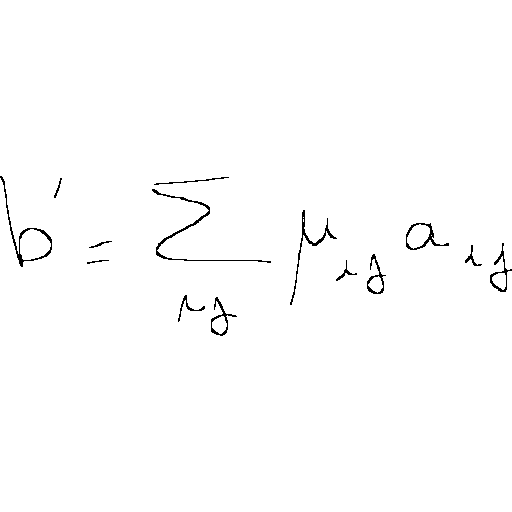 b' = \sum_{ij} \mu_{ij} a_{ij}